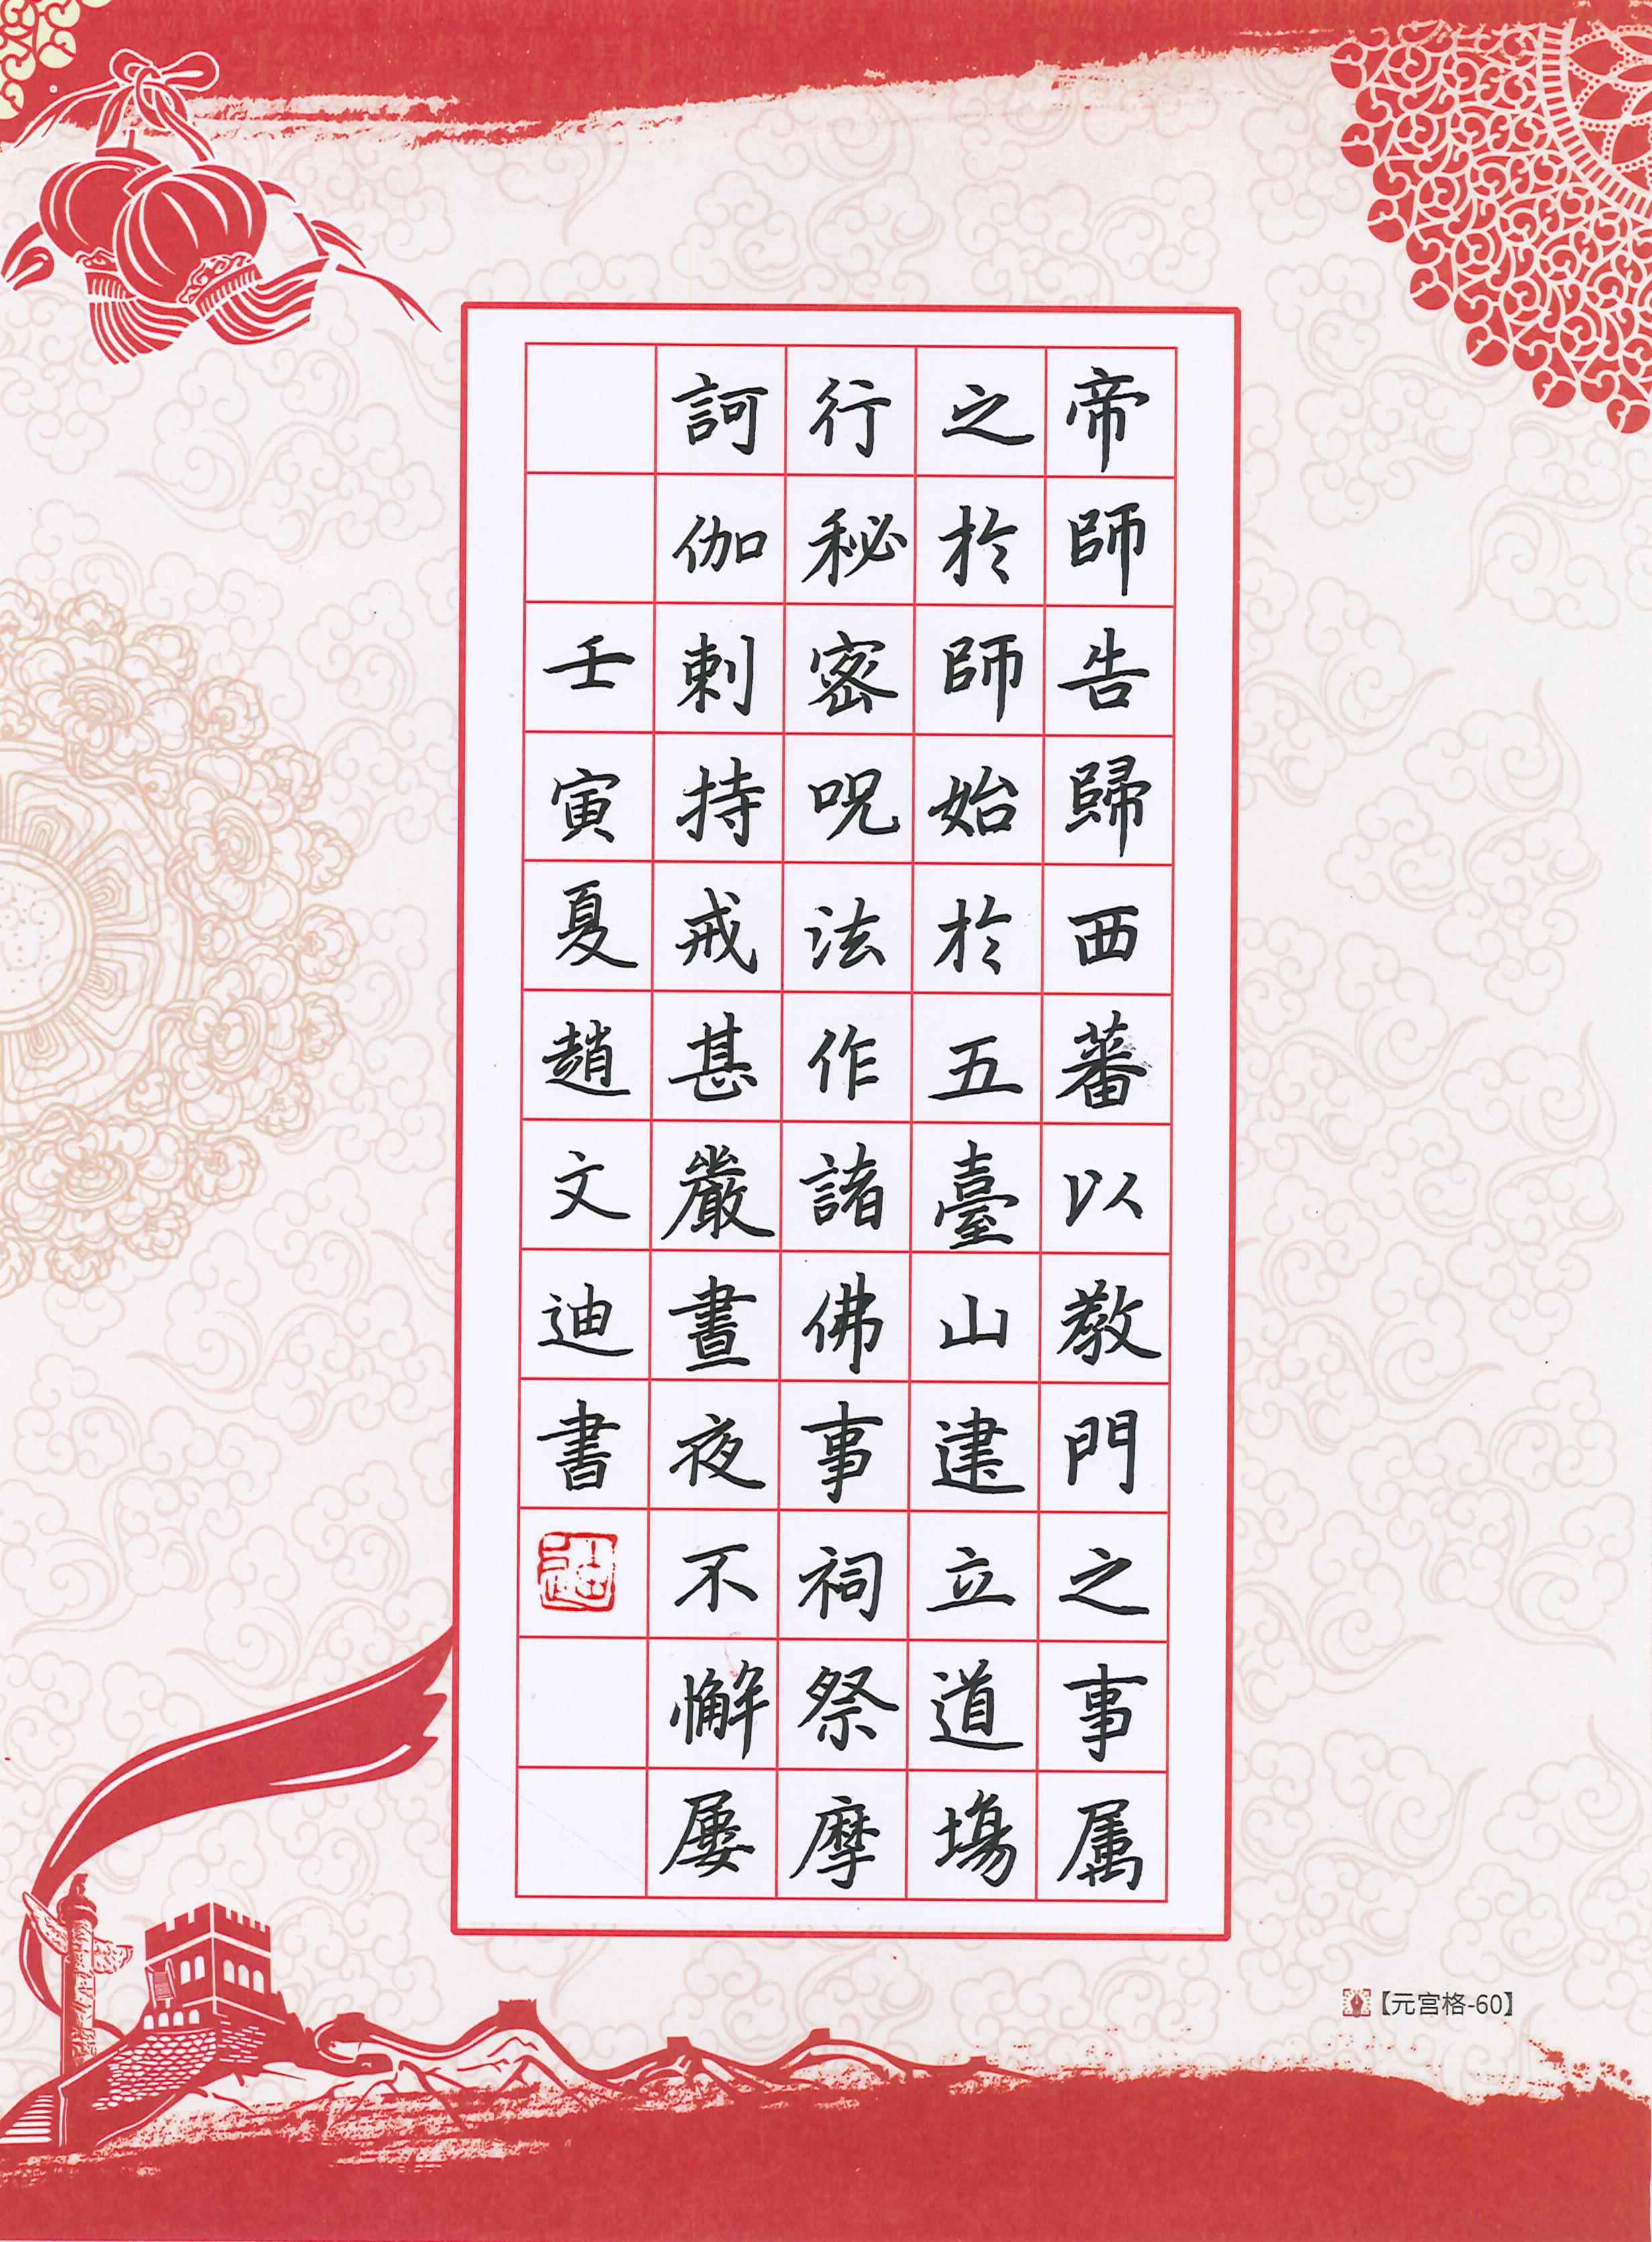 帝師告歸西蕃以教門之事属
之於師始於五臺山建立道場
行秘密呪法作諸佛事祠祭摩
訶伽剌持戒甚嚴晝夜不懈屢
壬寅夏趙文迪書
【元宫格-60】